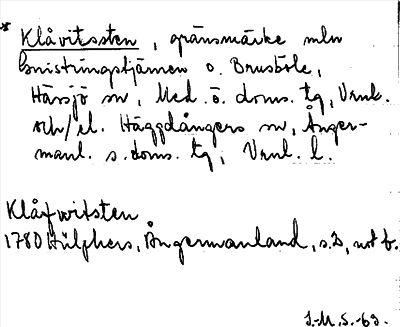 * Klåvitssten, gränsmärke mln
Gnistringstjärnen o. Brusböle,
Hässjö sn, Med. ö. doms. tg, Vrnl.
och/el. Häggdångers sn, Ånger-
manl. s. doms. tg, Vrnl. l.
Klåfwitsten
1780 Hülphers, Ångermanland, s. 2, not b.
J.-M. S. -63.